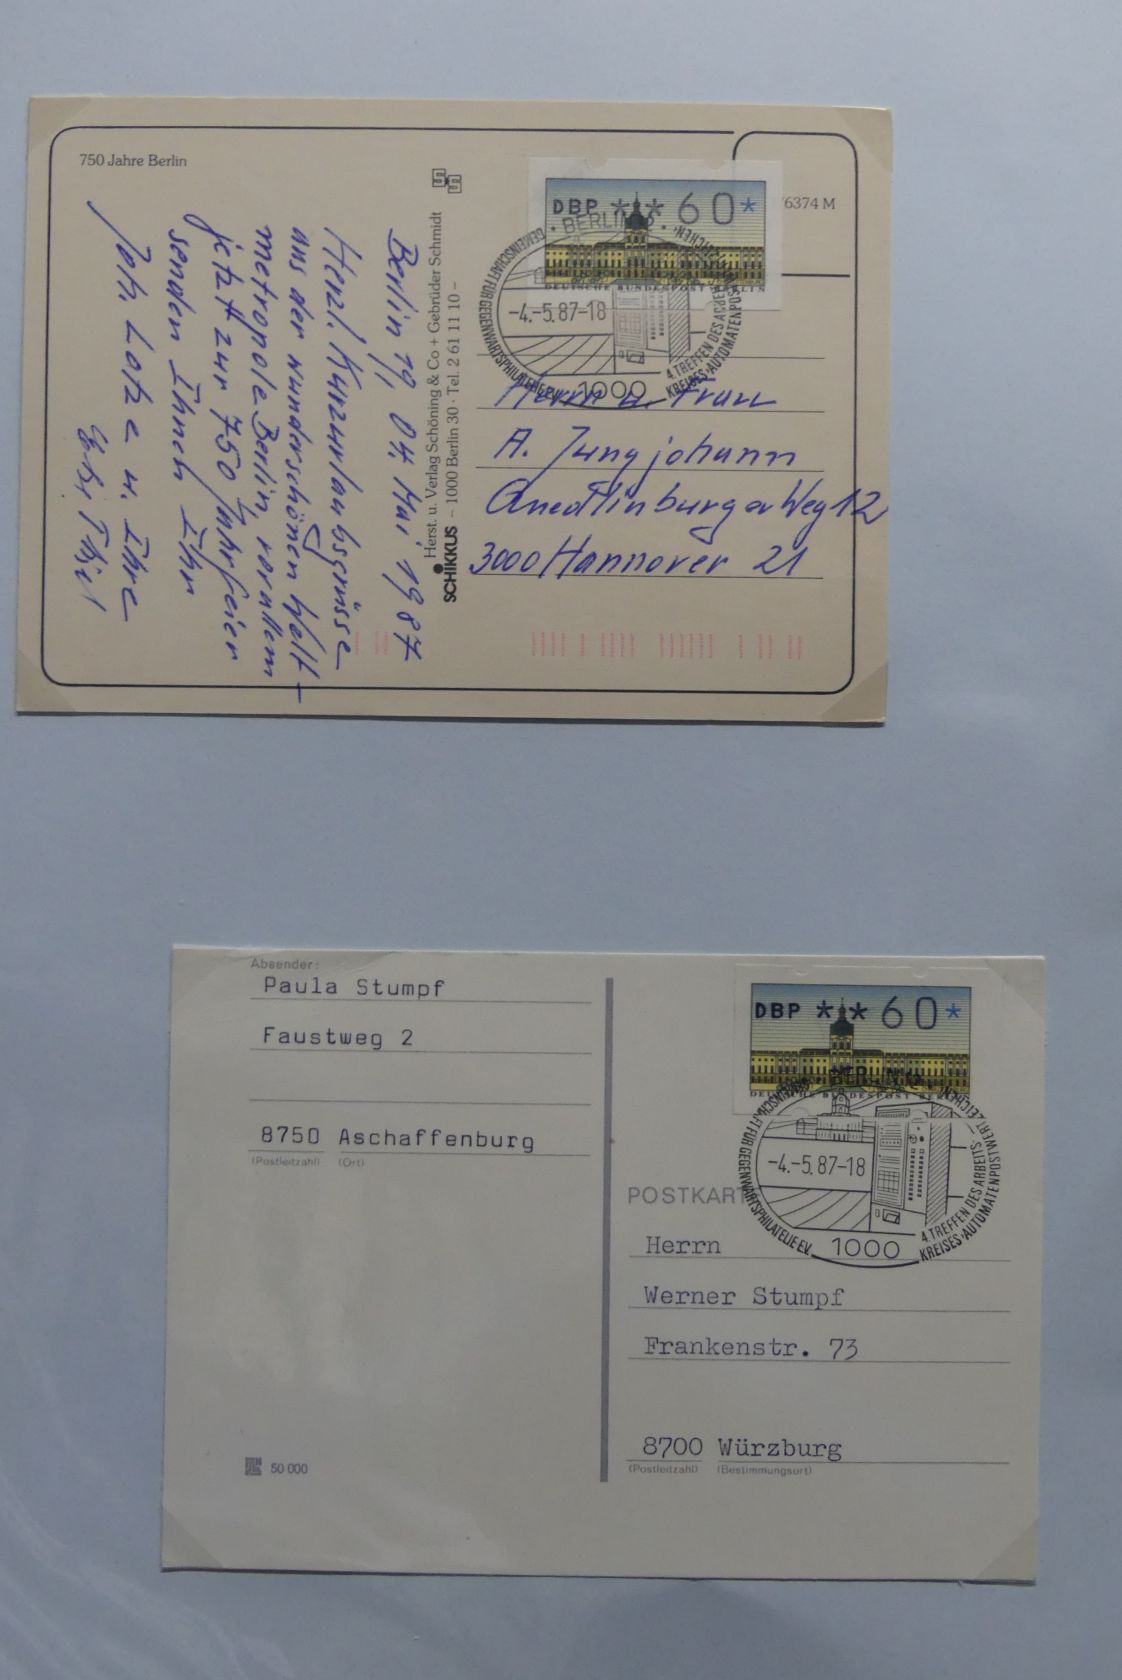 750 Jahre Berlin
76374 M
DBP ** 60*
DEUTSCHE BUNDESPOST BERLIN
BERLIN 12
GEMEINSCHAFT FÜR GEGENWARTSPHILATELIE E.V.
-4.-5.87-18
4. TREFFEN DES ARBEITS-
KREISES · AUTOMATENPOSTWERTZEICHEN ·
1000
Herst. u. Verlag Schöning & Co + Gebrüder Schmidt
SCHIKKUS – 1000 Berlin 30 · Tel. 2 61 11 10 –
Berlin 19, 04. Mai 1987
Herzl. Kurzurlaubsgrüsse
aus der wunderschönen Welt-
metropole Berlin, vor allem
jetzt zur 750 Jahrfeier
senden Ihnen Ihr
Joh. Lotze u. Ihre
Herrn u. Frau
A. Jungjohann
Quedlinburger Weg 12
3000 Hannover 21
Absender:
Paula Stumpf
Faustweg 2
8750 Aschaffenburg
(Postleitzahl) (Ort)
50 000
DBP ** 60*
DEUTSCHE BUNDESPOST BERLIN
BERLIN 12
GEMEINSCHAFT FÜR GEGENWARTSPHILATELIE E.V.
-4.-5.87-18
4. TREFFEN DES ARBEITS-
KREISES · AUTOMATENPOSTWERTZEICHEN ·
1000
POSTKARTE
Herrn
Werner Stumpf
Frankenstr. 73
8700 Würzburg
(Postleitzahl) (Bestimmungsort)